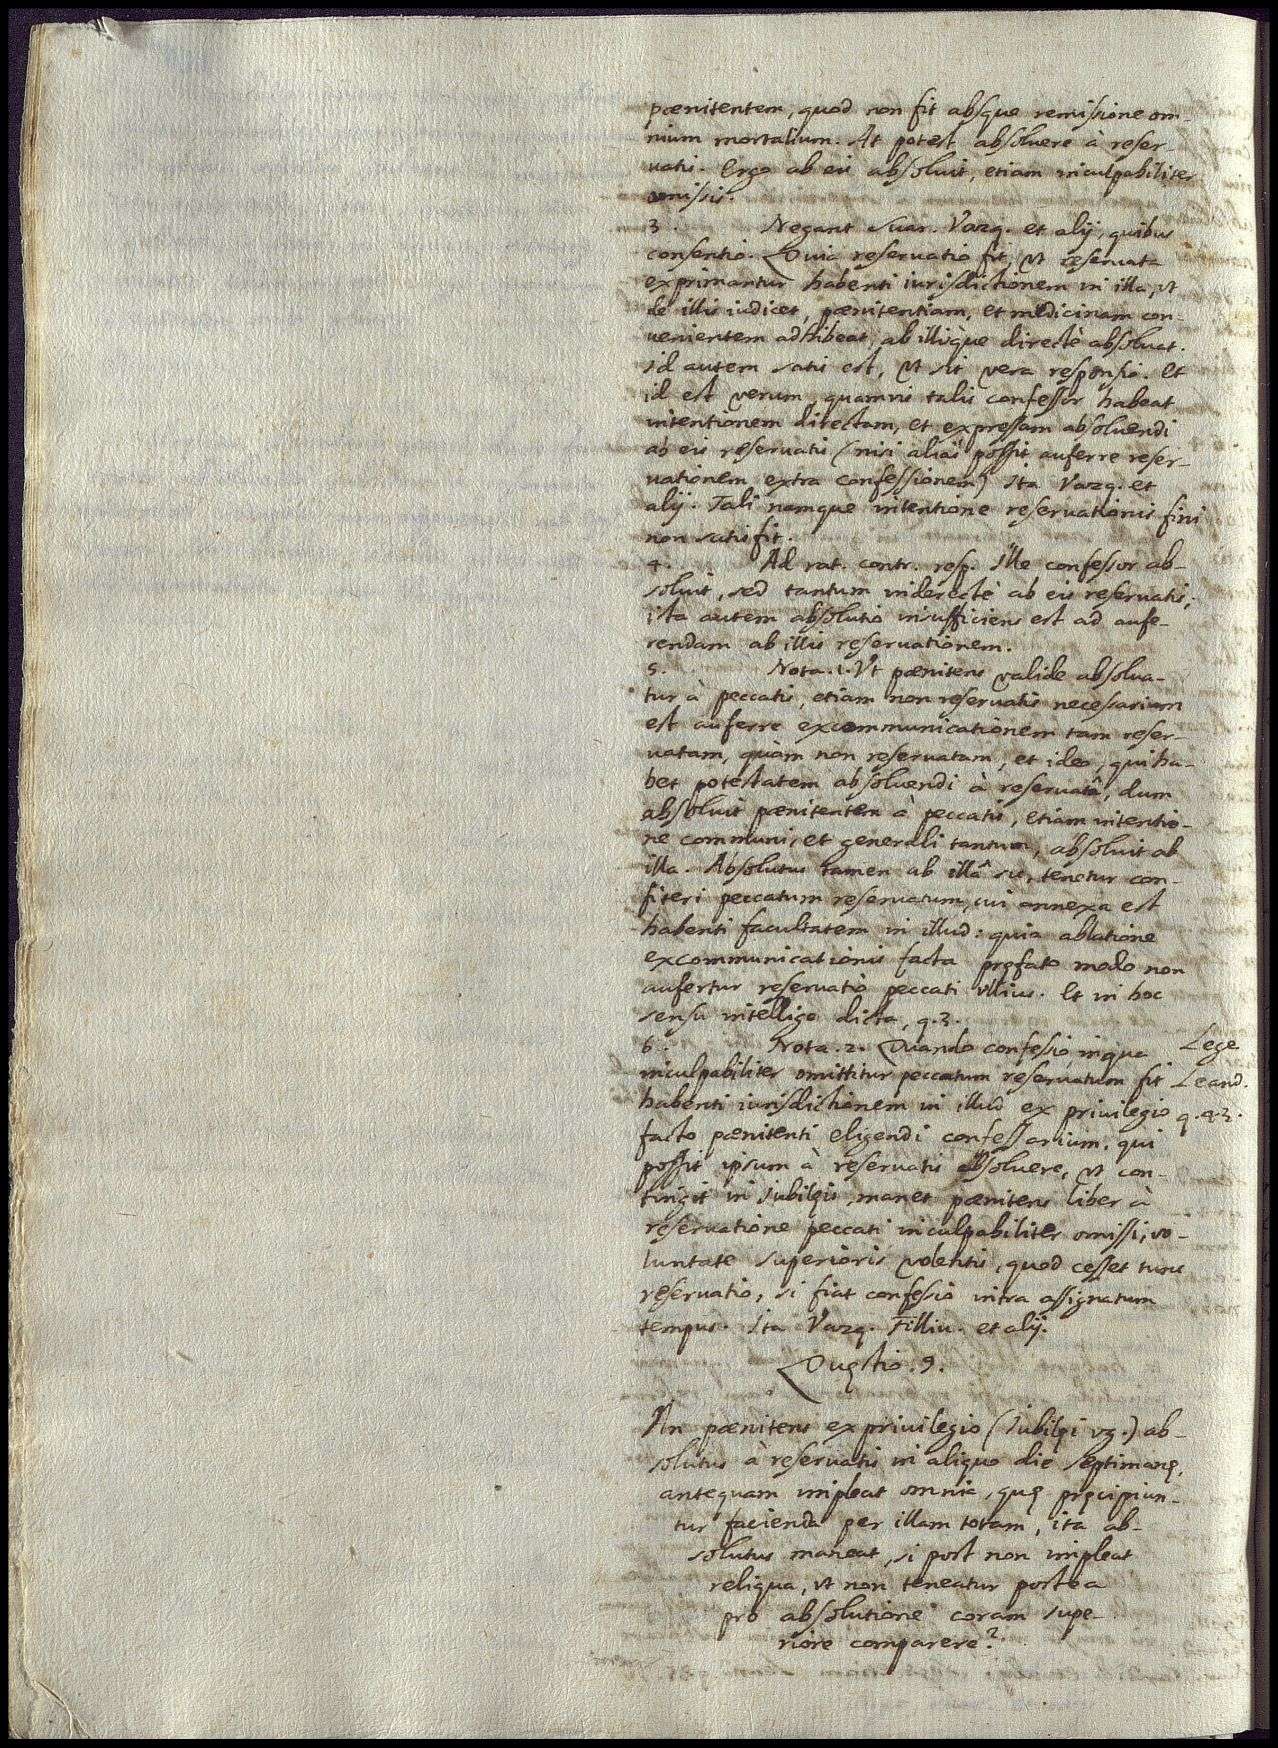 pœnitentem, quod non fit absque remissione om-
nium mortalium. At potest absoluere à reser
uatis. Ergo ab eis absoluit, etiam inculpabiliter
omissis.
3. Negant Suar. Vazq. et alij, quibus
consentio. Quia reseruatio fit, vt reseruata
exprimantur habenti iurisdictionem in illa, vt
de illis iudicet, pœnitentiam, et medicinam con-
uenientem adhibeat, ab illisque directè absoluat.
id autem satis est, vt sit vera responsio. Et
id est verum, quamuis talis confessor habeat
intentionem directam, et expressam absoluendi
ab eis reseruatis (nisi aliàs possit auferre reser-
uationem extra confessionem) Ita Vazq. et
alij. Tali namque intentione reseruationis fini
non satisfit.
4. Ad rat. contr. resp. Ille confessor ab-
soluit, sed tantum inderectè ab eis reseruatis,
ista autem absolutio insufficiens est ad aufe-
rendam ab illis reseruationem.
5. Nota .1. Vt pœnitens valide absolua-
tur à peccatis, etiam non reseruatis necessarium
est auferre excommunicationem tam reser-
uatam, quàm non reseruatam, et ideo, qui ha-
bet potestatem absoluendi à reseruatâ, dum
absoluit pœnitentem à peccatis, etiam intentio-
ne communi, et generali tantum, absoluit ab
illa. Absolutus tamen ab illâ sic, tenetur con-
fiteri peccatum reseruatum, cui annexa est
habenti facultatem in illud: quia ablatione
excommunicationis facta pręfato modo non
aufertur reseruatio peccati vllius. Et in hoc
sensu intelligo dicta, q. 3.
6. Nota .2. Quando confesio, in qua
inculpabiliter omittitur peccatum reseruatum fit
habenti iurisdictionem in illud ex priuilegio
facto pœnitenti eligendi confessarium, qui
possit ipsum à reseruatis absoluere, vt con-
tingit in Iubilęis, manet pœnitens liber à
reseruatione peccati inculpabiliter omissi, vo-
luntate superioris volentis, quod cesset tunc
reseruatio, si fiat confesio intra assignatum
tempus. Ita Vazq. Filliu. et alij.
Lege
Leand.
q. 42.
Quęstio .9.
An pœnitens ex priuilegio (Iubilęi vg.) ab-
solutus à reseruatis in aliquo die septimanę,
antequam impleat omnia, quę pręcipiun-
tur facienda per illam totam, ita ab-
solutus maneat, si post non impleat
reliqua, vt non teneatur postea
pro absolutione coram supe-
riore comparere?